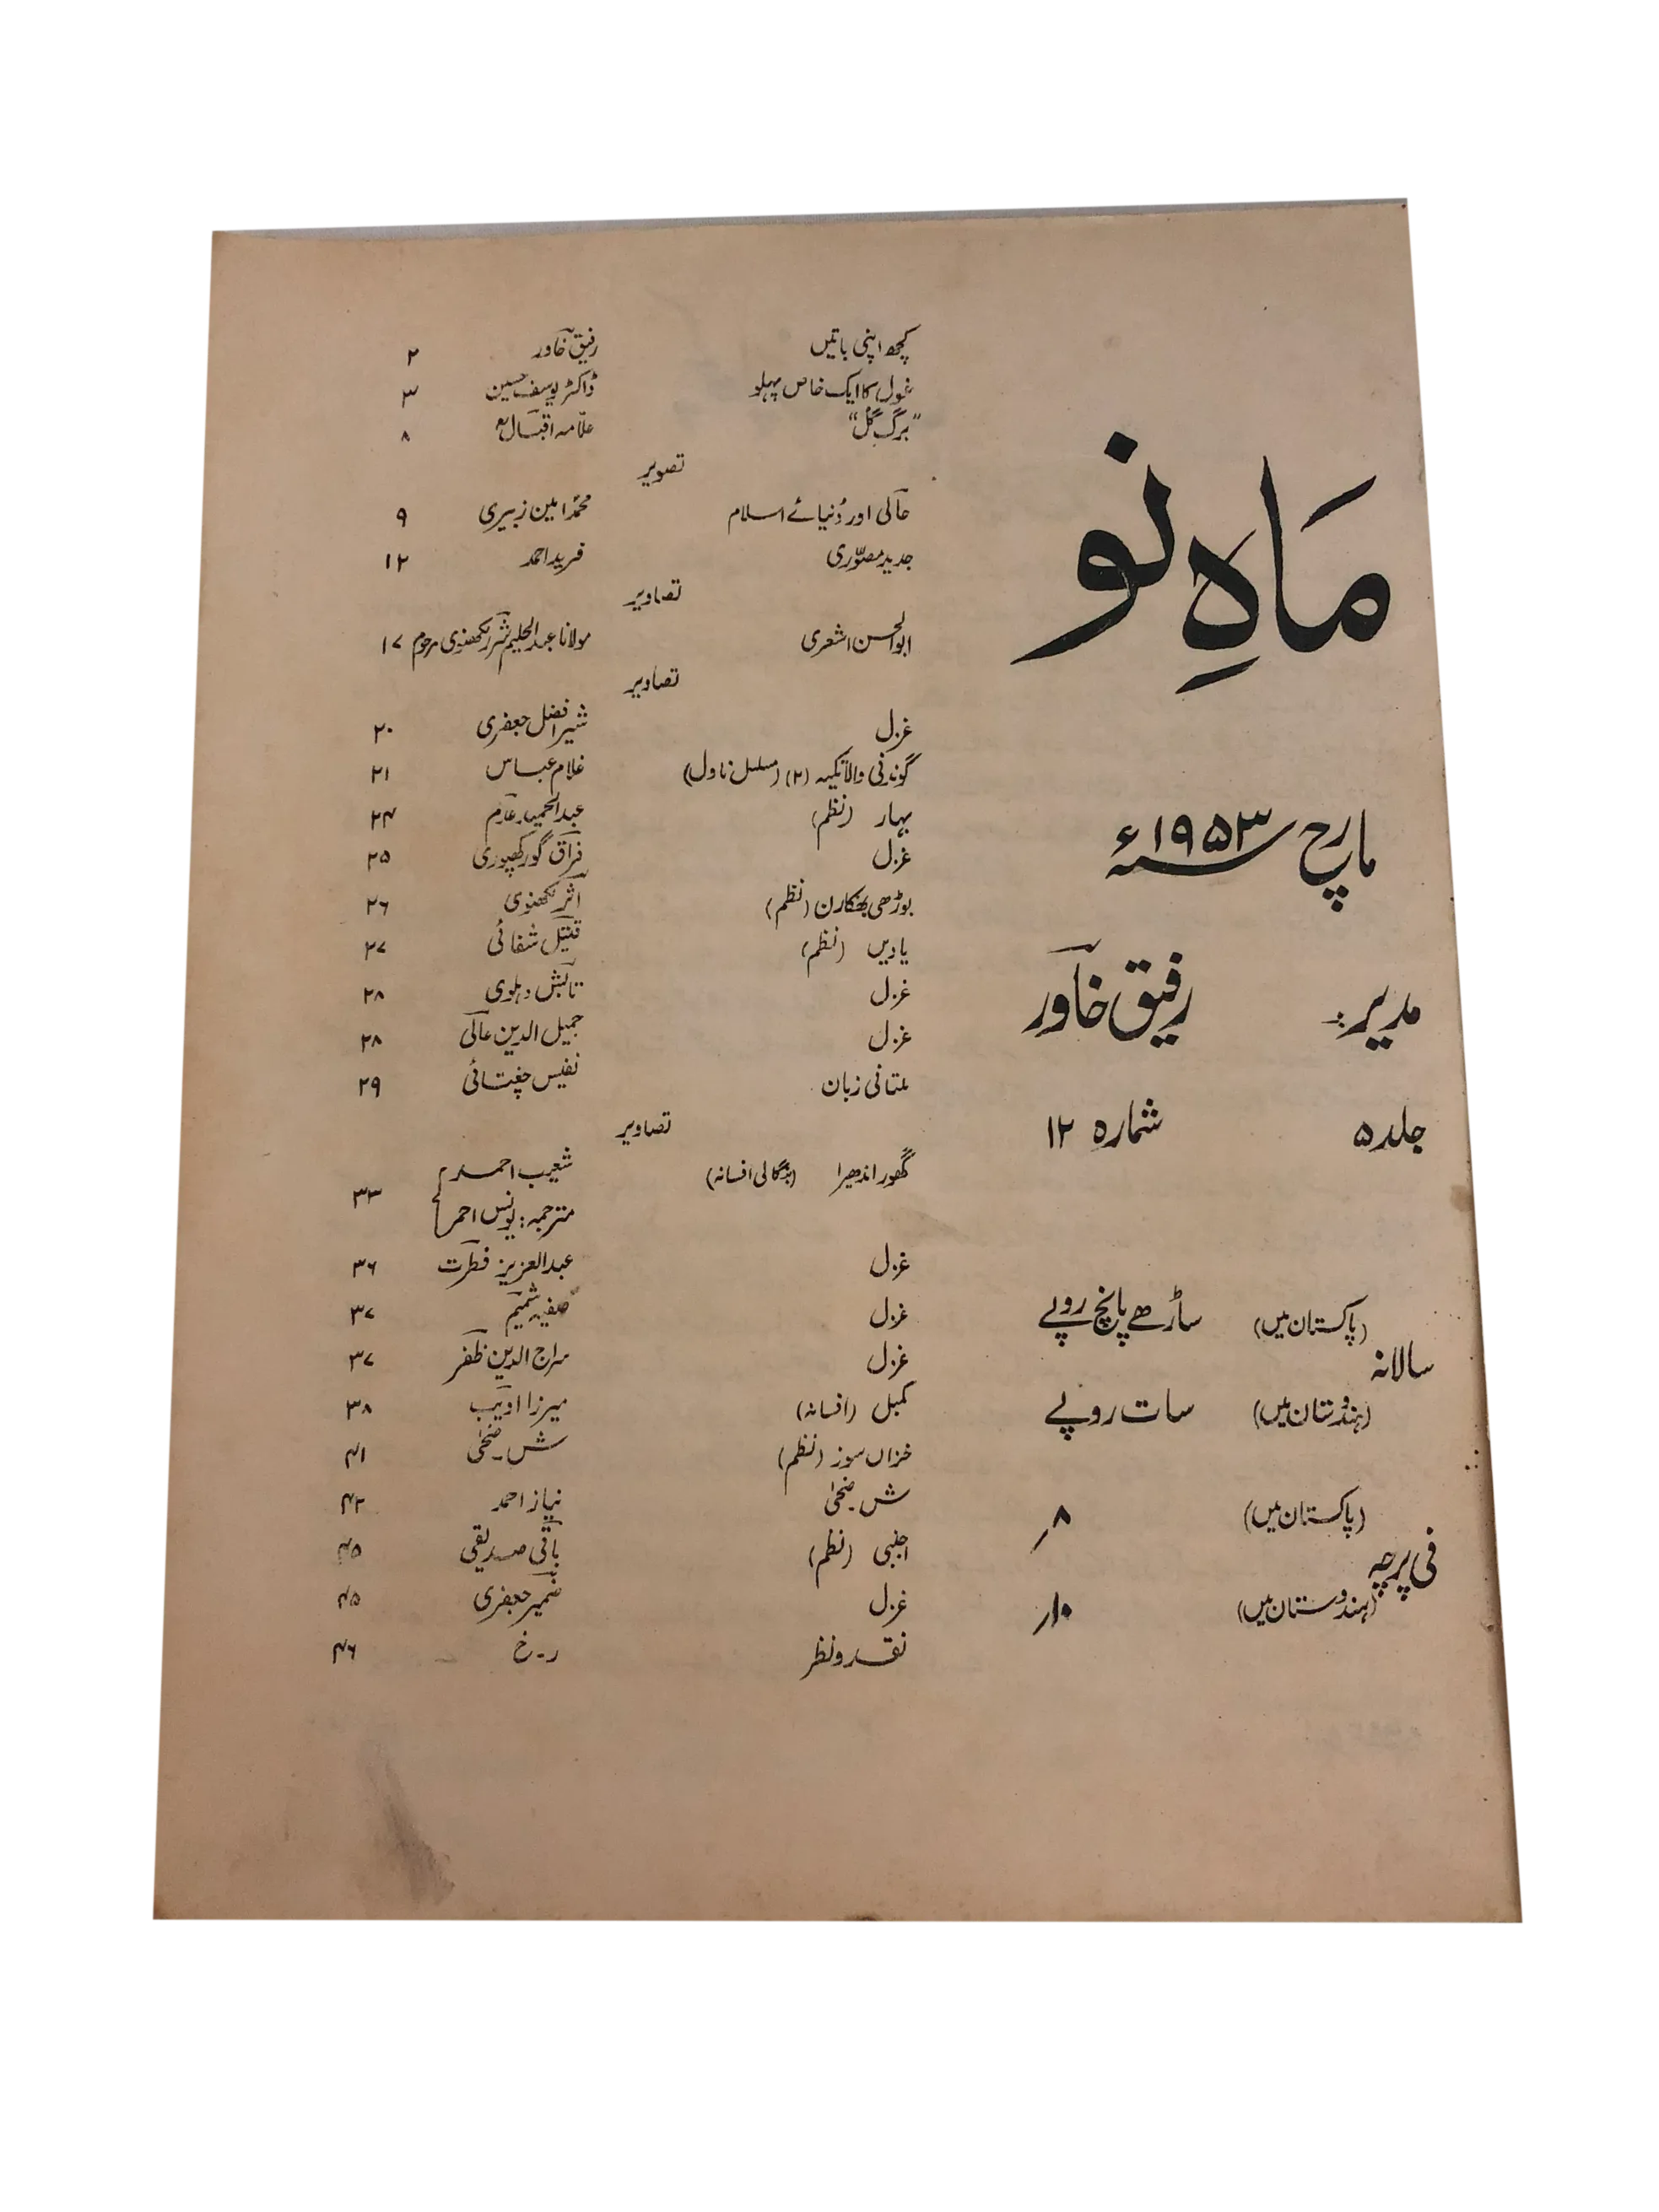 ماہِ نو
مارچ ۱۹۵۳ء
مدیر:۔ رفیق خاور
جلد ۵ شمارہ ۱۲
سالانہ
(پاکستان میں) ساڑھے پانچ روپے
(ہندوستان میں) سات روپے
فی پرچہ
(پاکستان میں) ۸؍
(ہندوستان میں) ۱۰؍
کچھ اپنی باتیں رفیق خاور ۲
غزل کا ایک خاص پہلو ڈاکٹر یوسف حسین ۳
"برگِ گل" علامہ اقبالؒ ۸
تصویر
حالی اور دُنیائے اسلام محمد امین زبیری ۹
جدید مصوّری فرید احمد ۱۲
تصاویر
ابوالحسن اشعری مولانا عبدالحلیم شرر لکھنوی مرحوم ۱۷
تصاویر
غزل شیر افضل جعفری ۲۰
گوندنی والا تکیہ (۲) (مسلسل ناول) غلام عباس ۲۱
بہار (نظم) عبدالحمید عدم ۲۴
غزل فراق گورکھپوری ۲۵
بوڑھی بھکارن (نظم) اثر لکھنوی ۲۶
یادیں (نظم) قتیل شفائی ۲۷
غزل تابش دہلوی ۲۸
غزل جمیل الدین عالی ۲۸
ملتانی زبان نفیس چغتائی ۲۹
تصاویر
گھور اندھیرا (بنگالی افسانہ) شعیب احمد
مترجمہ: یونس احمر ۳۳
غزل عبدالعزیز فطرت ۳۶
غزل صفیہ شمیم ۳۷
غزل سراج الدین ظفر ۳۷
کمبل (افسانہ) میرزا ادیب ۳۸
خزاں سوز (نظم) ش۔ ضحیٰ ۴۱
ش۔ ضحیٰ نیاز احمد ۴۲
اجنبی (نظم) باقی صدیقی ۴۵
غزل ضمیر جعفری ۴۵
نقد و نظر ر۔ خ ۴۶